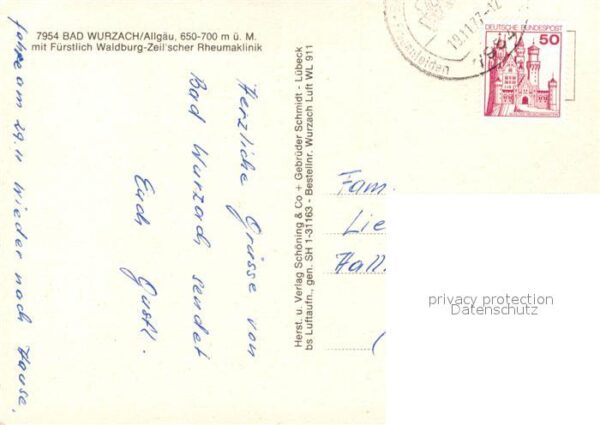 7954 BAD WURZACH/Allgäu, 650-700 m ü. M.
mit Fürstlich Waldburg-Zeil'scher Rheumaklinik
Herzliche Grüsse von
Bad Wurzach sendet
Euch Gustl.
fahre am 29.11 wieder nach Hause.
Herst. u. Verlag Schöning & Co + Gebrüder Schmidt - Lübeck
bs Luftaufn., gen. SH 1-31163 - Bestellnr. Wurzach Luft WL 911
19.11.77-12
7954
DEUTSCHE BUNDESPOST
50
Fam.
Lie
Hall
privacy protection
Datenschutz